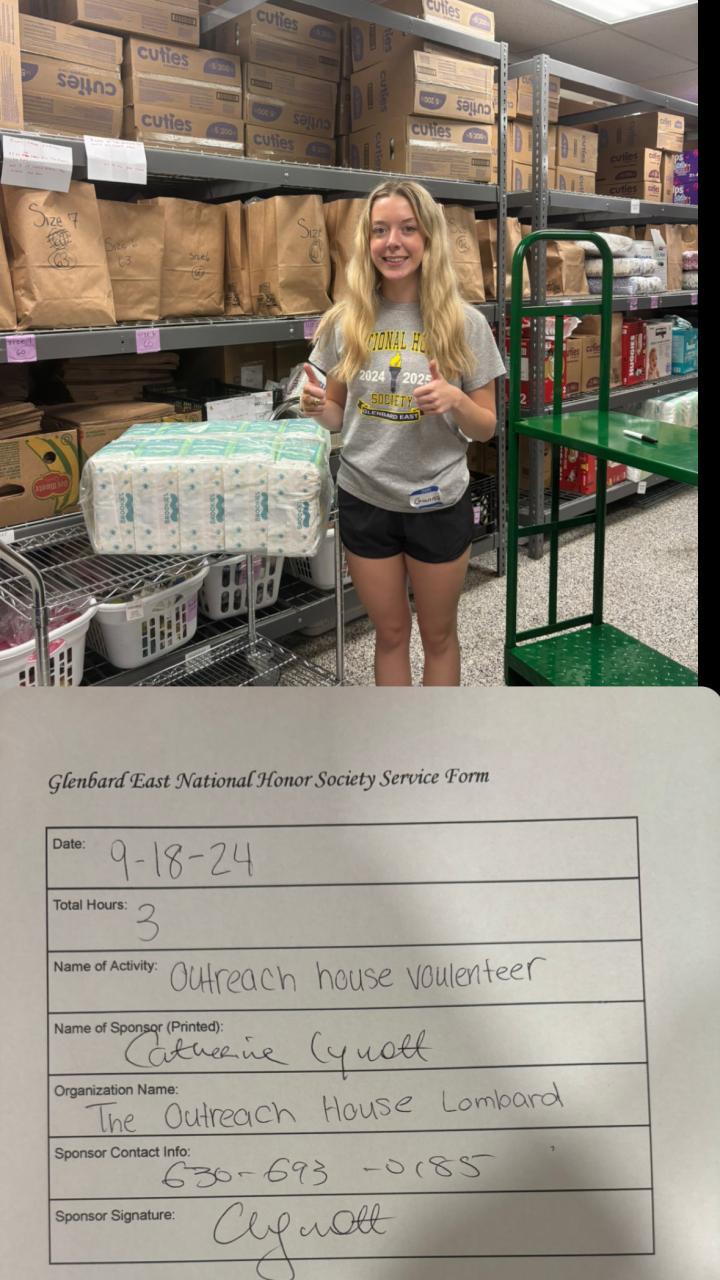 cuties
cuties
cuties
cuties
cuties
cuties
cuties
Size 7
NATIONAL HO
2024 2025
SOCIETY
GLENBARD EAST
HUGGIES
Glenbard East National Honor Society Service Form
Date: 9-18-24
Total Hours: 3
Name of Activity: Outreach house voulenteer
Name of Sponsor (Printed):
Catherine Cynott
Organization Name:
The Outreach House Lombard
Sponsor Contact Info:
630-693-0185
Sponsor Signature: CCynott